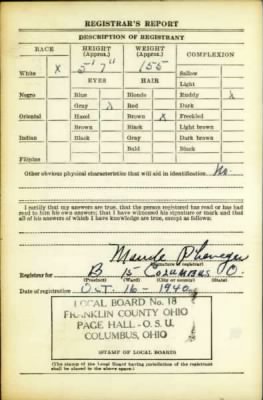 REGISTRAR'S REPORT
DESCRIPTION OF REGISTRANT
RACE HEIGHT (Approx.) WEIGHT (Approx.) COMPLEXION
White X 5' 7" 155 Sallow
EYES HAIR Light
Negro Blue Blonde Ruddy X
Gray X Red Dark
Oriental Hazel Brown X Freckled
Brown Black Light brown
Indian Black Gray Dark brown
Bald Black
Filipino
Other obvious physical characteristics that will aid in identification No.
I certify that my answers are true; that the person registered has read or has had
read to him his own answers; that I have witnessed his signature or mark and that
all of his answers of which I have knowledge are true, except as follows:
Maude
(Signature of registrar)
Registrar for B 15 Columbus O.
(Precinct) (Ward) (City or county) (State)
Date of registration Oct. 16 - 1940
LOCAL BOARD No. 18
FRANKLIN COUNTY OHIO
PAGE HALL - O. S. U.
COLUMBUS, OHIO
(STAMP OF LOCAL BOARD)
(The stamp of the Local Board having jurisdiction of the registrant
shall be placed in the above space.)